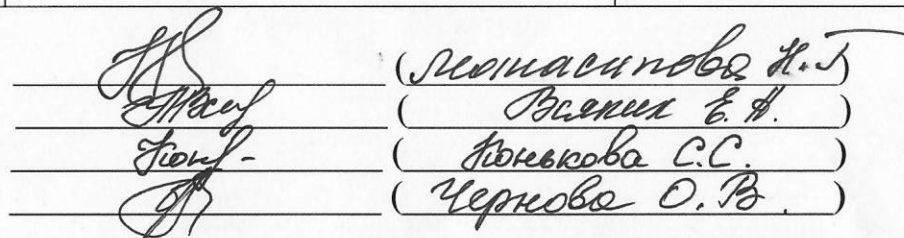 (Мотасипова Н.Г)
(Всяких Е.А.)
(Конькова С.С.)
(Чернова О.В.)